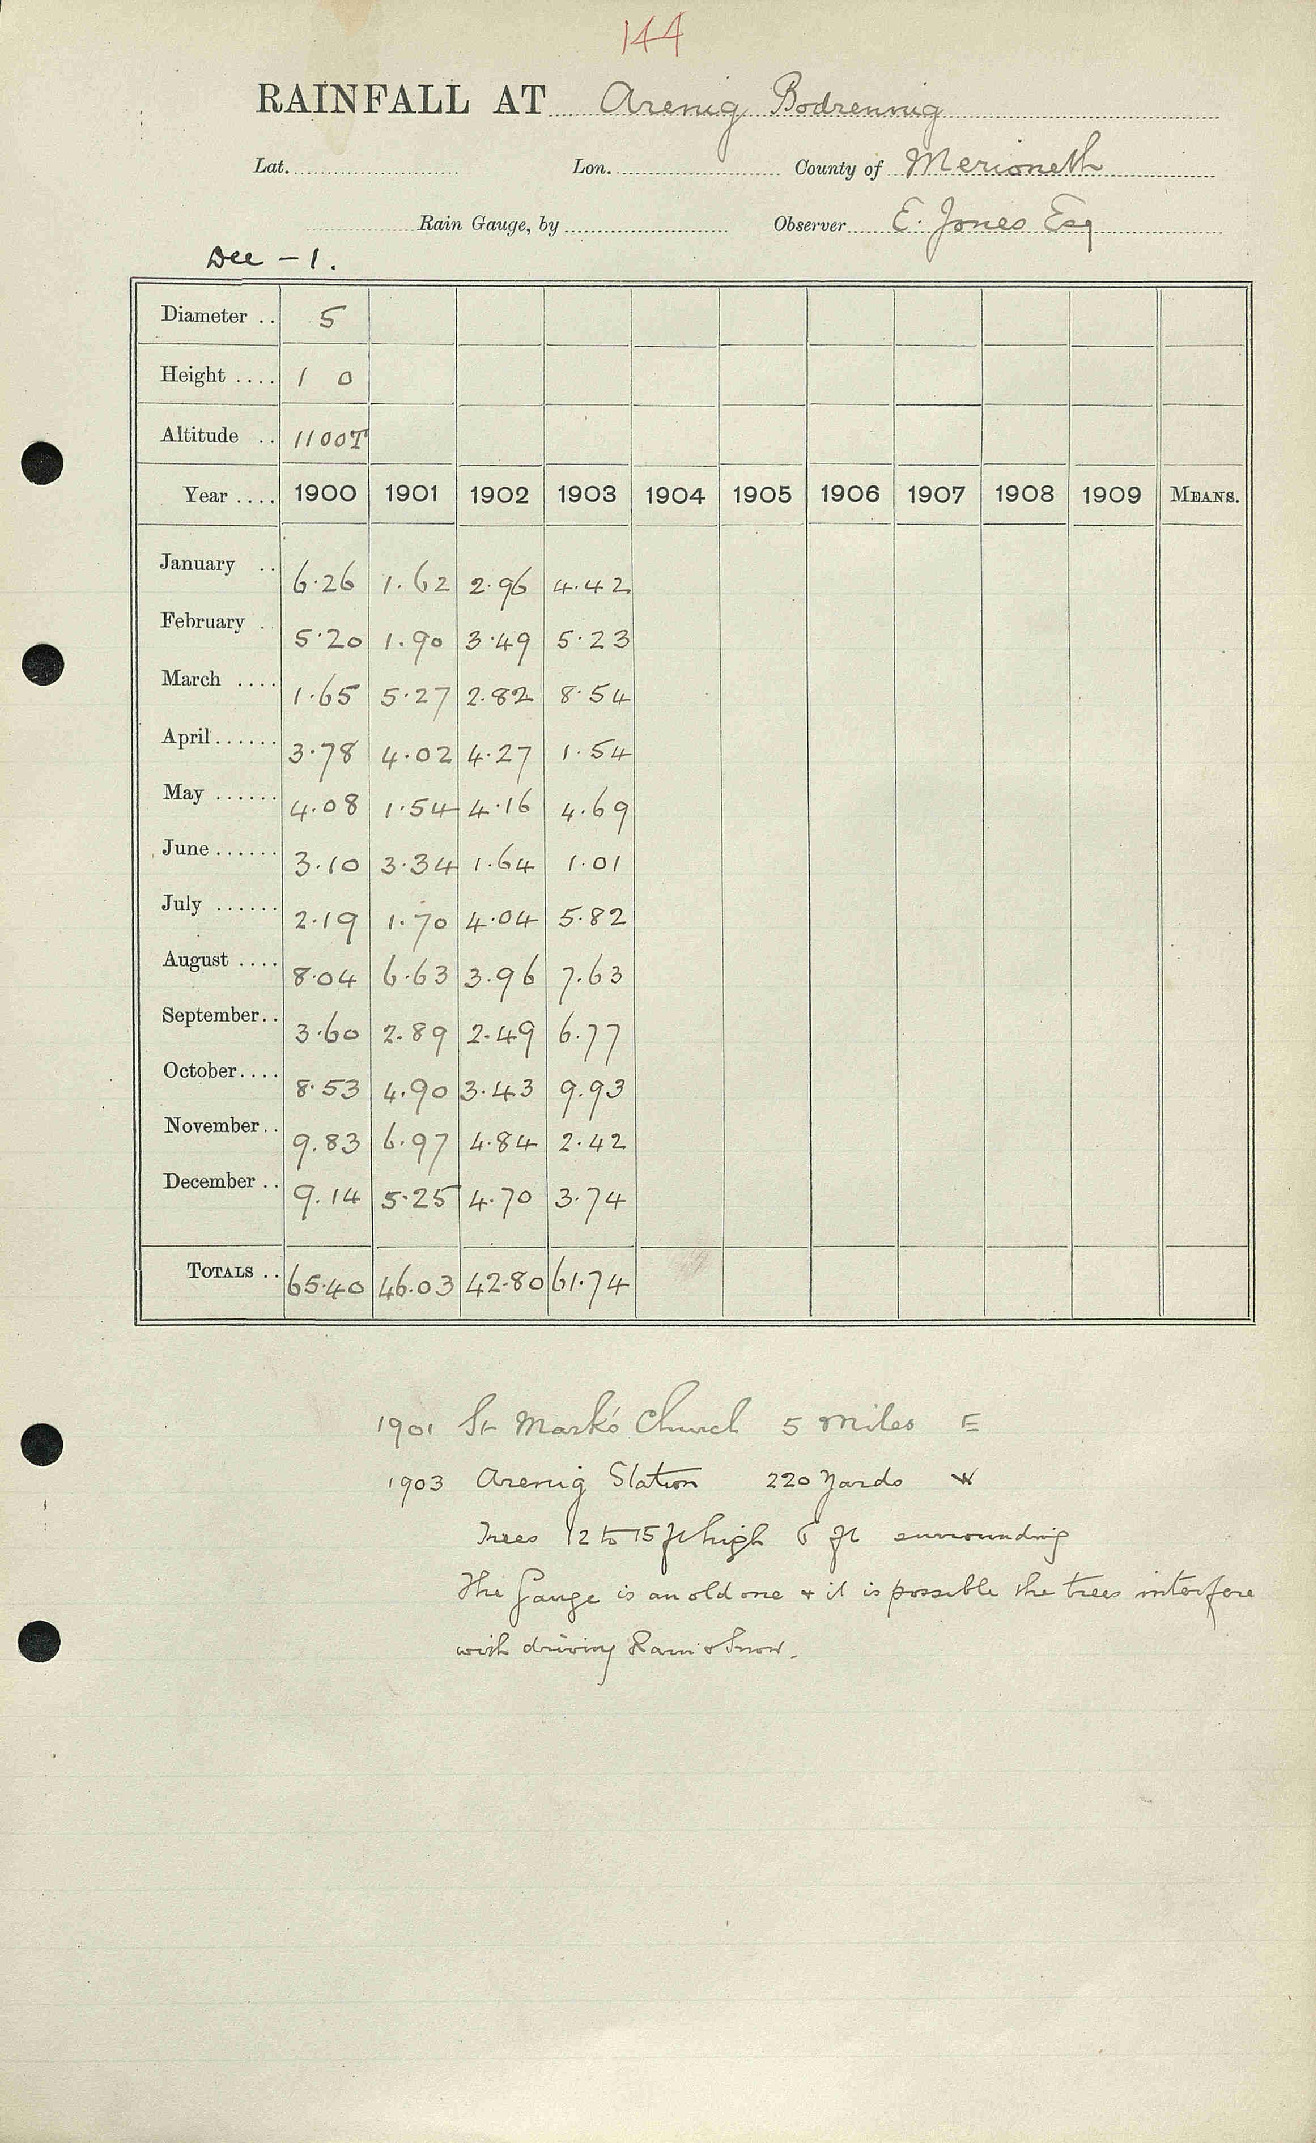 144
RAINFALL AT Arenig Bodrennig
Lat. Lon. County of Merioneth
Rain Gauge, by Observer E. Jones Esq
Dee - 1.
Diameter .. 5
Height .... 1 0
Altitude .. 1100T
Year .... 1900 1901 1902 1903 1904 1905 1906 1907 1908 1909 MEANS.
January .. 6.26 1.62 2.96 4.42
February . 5.20 1.90 3.49 5.23
March .... 1.65 5.27 2.82 8.54
April...... 3.78 4.02 4.27 1.54
May ...... 4.08 1.54 4.16 4.69
June...... 3.10 3.34 1.64 1.01
July ...... 2.19 1.70 4.04 5.82
August .... 8.04 6.63 3.96 7.63
September.. 3.60 2.89 2.49 6.77
October.... 8.53 4.90 3.43 9.93
November.. 9.83 6.97 4.84 2.42
December .. 9.14 5.25 4.70 3.74
TOTALS .. 65.40 46.03 42.80 61.74
1901 St Mark's Church 5 miles E
1903 Arenig Station 220 Yards W
Trees 12 to 15 ft high 6 ft surrounding
The Gauge is an old one & it is possible the trees interfere
with driving Rain & Snow.